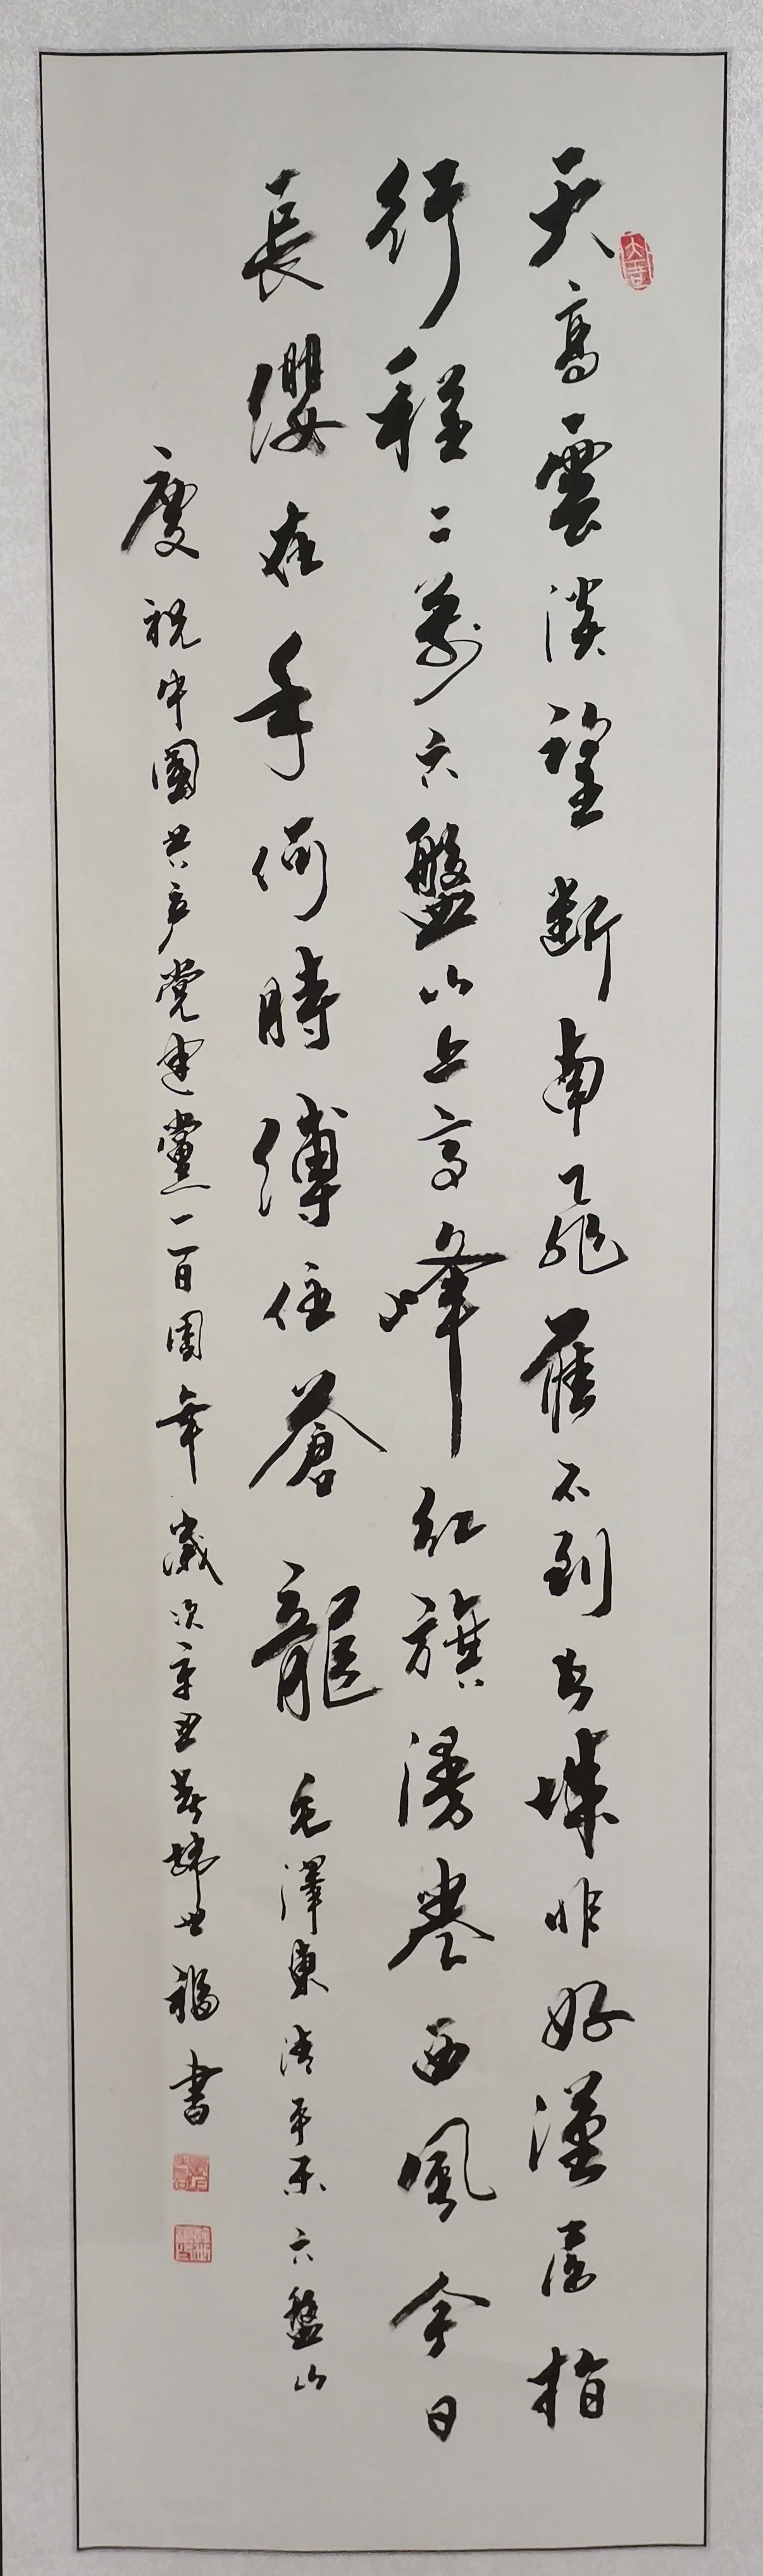 天高雲淡望断南飛雁不到长城非好漢屈指
行程二萬六盤山上高峰紅旗漫卷西風今日
長纓在手何時縛住蒼龍 毛澤東清平乐六盤山
慶祝中國共产党建黨一百周年歲次辛丑春世福書